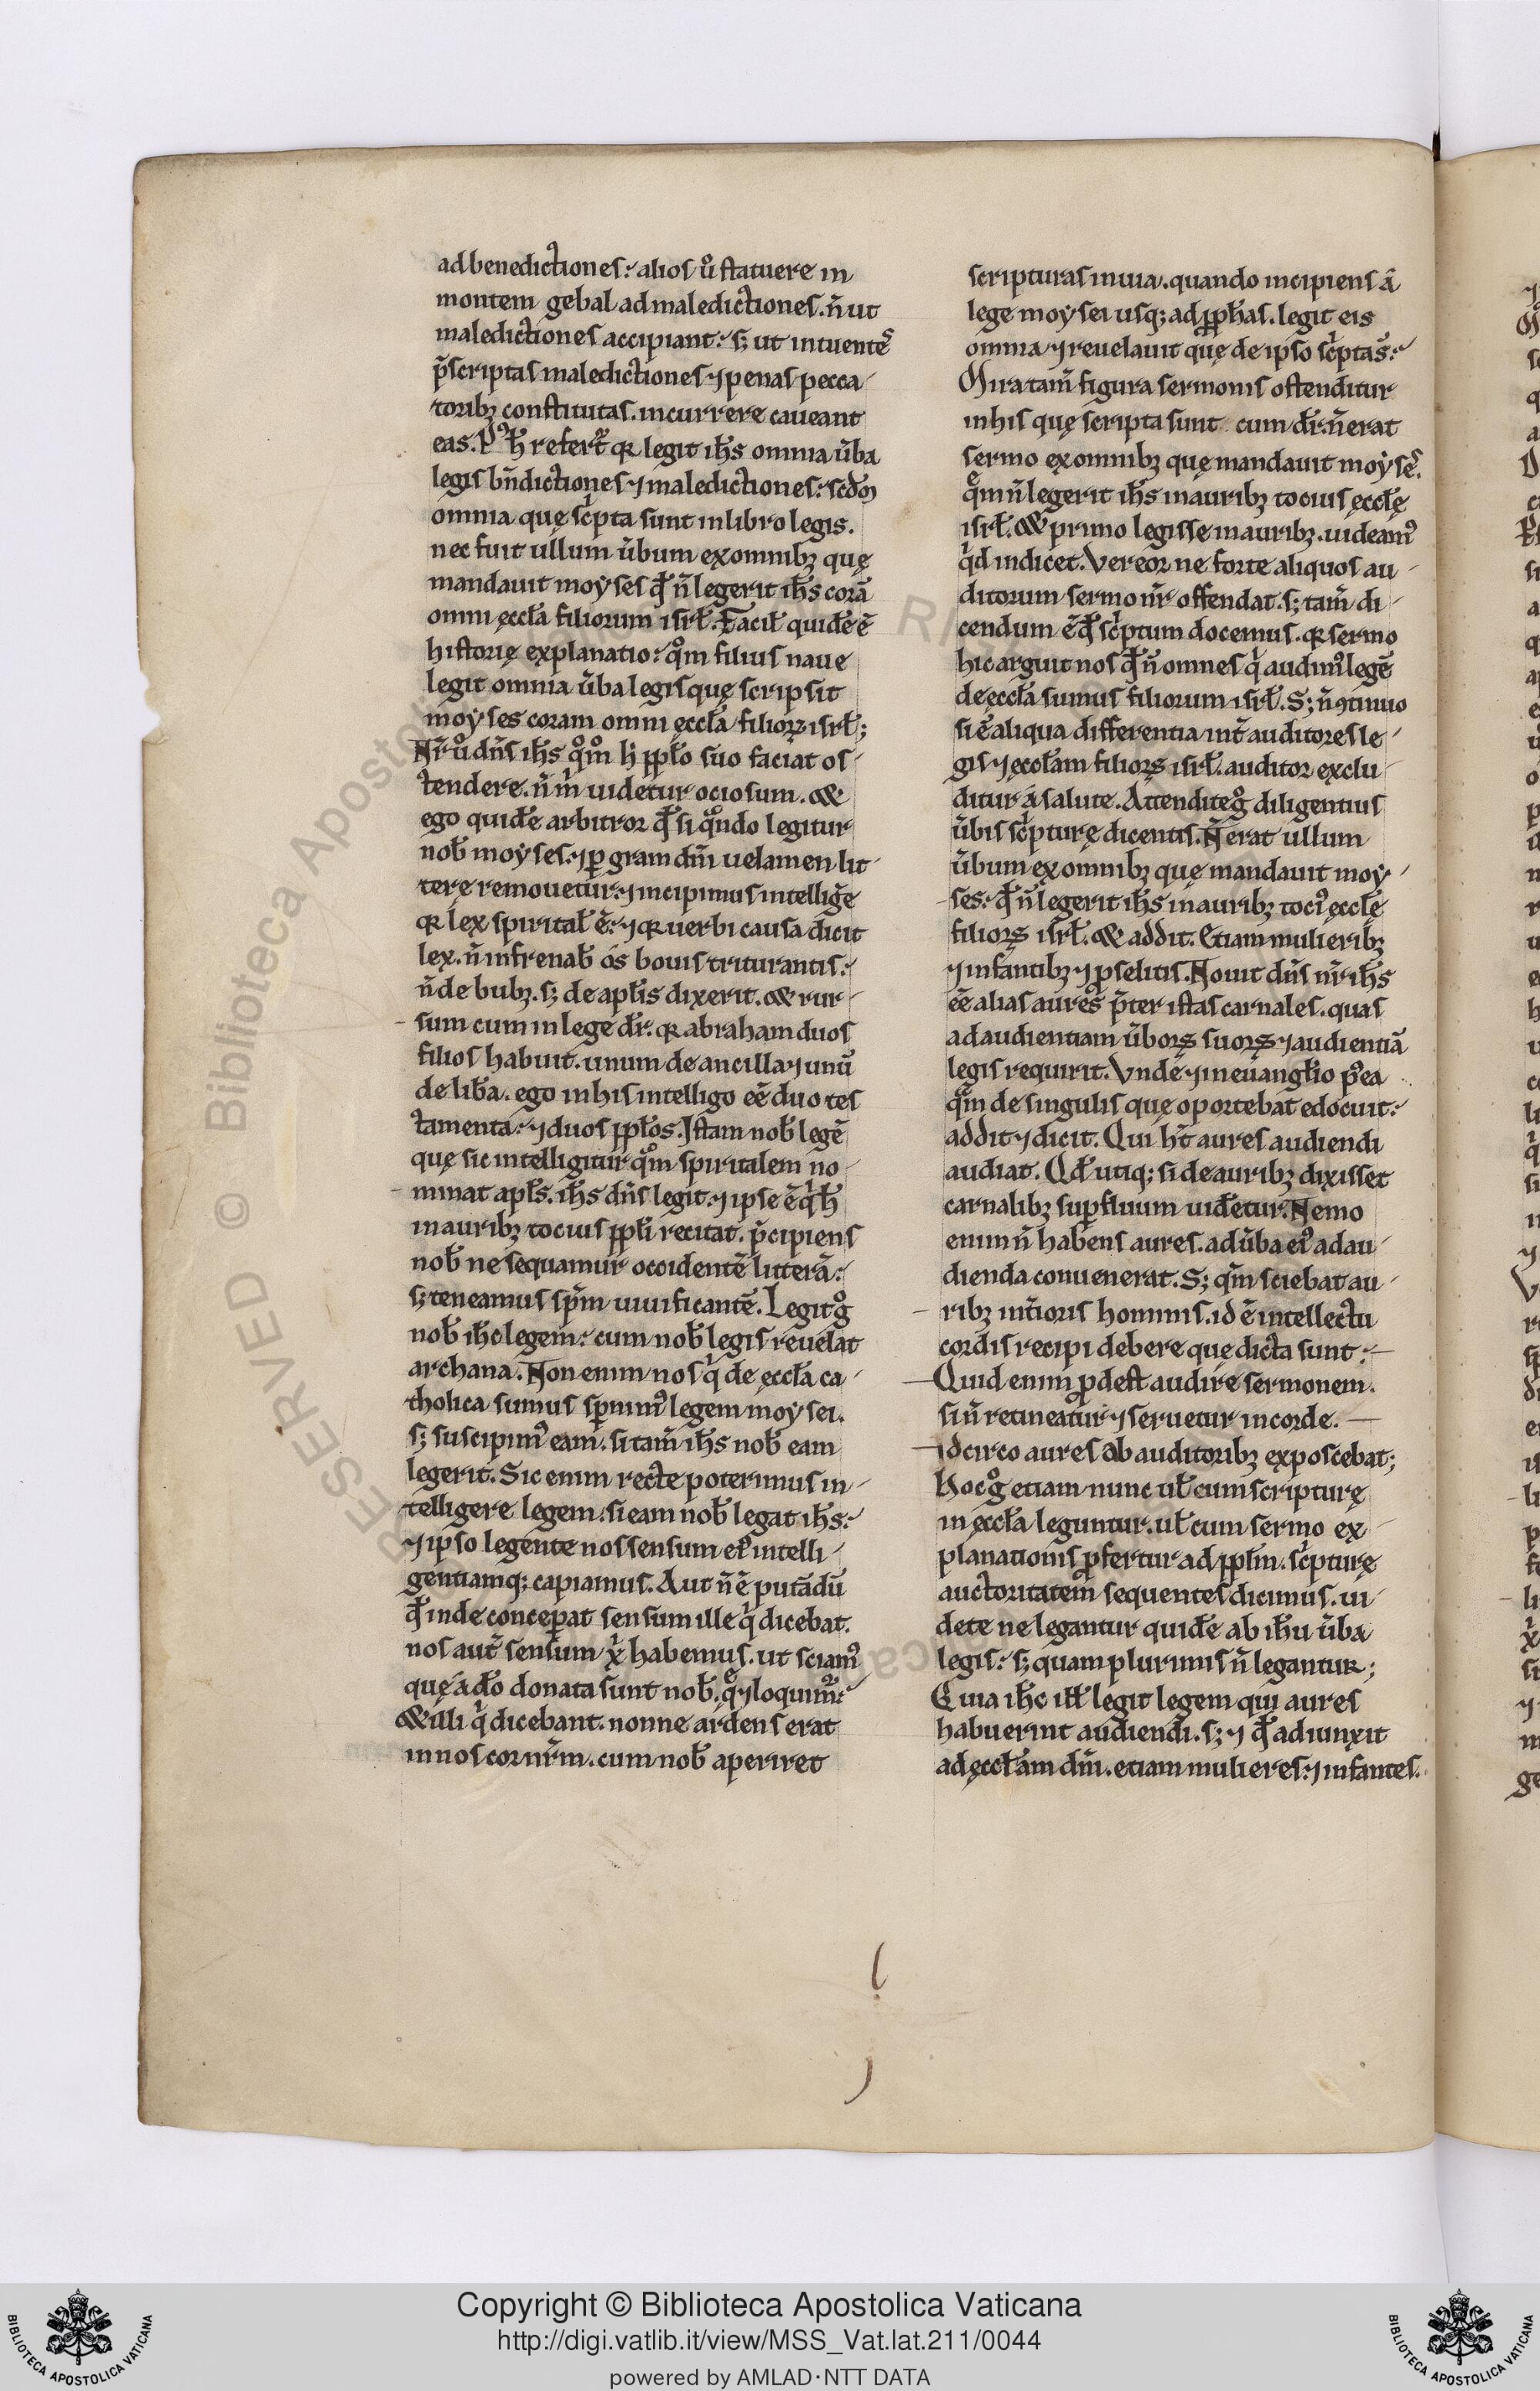 ad benedictiones. alios ů statuere in
montem gebal ad maledictiones. ñ ut
maledictiones accipiant. s; ut intuentes
p̃scriptas maledictiones ⁊ penas pecca
toribꝫ constitutas. incurrere caveant
eas. P' h̄ refert̃ qꝛ legit ih̅s omnia ũba
legis bñdictiones ⁊ maledictiones. scd̄m
omnia quę sc̃pta sunt in libro legis.
nec fuit ullum ũbum ex omnibꝫ quę
mandauit moẏses qđ ñ legerit ih̅s corā
omni ęccła filiorum isrł. Facił quidē ē
historię explanatio. qm̊ filius naue
legit omnia ũba legis quę scripsit
moẏses coram omni ęccła filioꝝ isrł;
Nr̃ ů dñs ih̅s qm̊o h̓ pp̱lo suo faciat os
tendere. ñ m̓ uidetur ociosum. &
ego quidē arbitror qđ si qñdo legitur
nob̄ moẏses. ⁊ ꝑ gram dñi uelamen lit
terę remouetur. ⁊ incipimus intelligẽ
qꝛ lex spiritał ẽ. ⁊ qꝛ uerbi causa dicit
lex. ñ infrenab̄ ós bouis triturantis.
ñ de bubꝫ. s; de apłis dixerit. & rur
sum cum in lege dr̃. qꝛ abraham duos
filios habuit. unum de ancilla ⁊ unū
de lib̃a. ego in his intelligo eē duo tes
tamenta. ⁊ duos pp̱los. Istam nob̄ legē
quę sic intelligitur qm̊ spiritalem no
minat apłs. ih̅s dñs legit. ⁊ ipse ē q̓ h̄
in auribꝫ tocius pp̱li recitat. p̃cipiens
nob̄ ne sequamur occidentē litterā.
s; teneamus sp̃m uiuificantē. Legit g̊
nob̄ ih̅c legem. cum nob̄ legis reuelat
archana. Non enim nos q̓ de ęccła ca
tholica sumus sp̱nim' legem moẏsei.
s; suscipim' eam. si tam̃ ih̅s nob̄ eam
legerit. Sic enim recte poterimus in
telligere legem. si eam nob̄ legat ih̅s.
⁊ ipso legente nos sensum ei' intelli
gentiamq; capiamus. Aut ñ ē putādū
qđ inde conceꝑat sensum ille q̓ dicebat.
nos aut̃ sensum x̓ habemus. ut sciam'
quę á dõ donata sunt nob̄. q̨ ⁊ loquim'.
& illi q̓ dicebant. nonne ardens erat
in nos cor nr̃m. cum nob̄ aperiret
scripturas in uia. quando incipiens ā
lege moẏsei usq; ad ꝓph̄as. legit eis
omnia ⁊ reuelauit quę de ipso sc̓pta s̃.
Mira tam̃ figura sermonis ostenditur
in his quę scripta sunt cum dr̃. ñ erat
sermo ex omnibꝫ quę mandauit moẏsẽs.
quem ñ legerit ih̅s in auribꝫ tocius ęccłę
isrł. & primo legisse in auribꝫ. uideam'
q̓d indicet. Vereor ne forte aliquos au
ditorum sermo nr̃ offendat. s; tam̃ di
cendum ē qđ sc̓ptum docemus. qꝛ sermo
hic arguit nos qđ ñ omnes q̓ audim' legē
de ęccła sumus filiorum isrł. S; ñ ꝯtinuo
si ē aliqua differentia int̃ auditores le
gis ⁊ ęccłam filioꝝ isrł. auditor exclu
ditur á salute. Attendite g̊ diligentius
ũbis sc̓pturę dicentis. Ñ erat ullum
ũbum ex omnibꝫ quę mandauit moẏ
ses. qđ ñ legerit ih̅s in auribꝫ toci' ęccłę
filioꝝ isrł. & addit. Etiam mulieribꝫ
⁊ infantibꝫ ⁊ ꝓselitis. Nouit dñs nr̃ ih̅s
eē alias aures p̃ter istas carnales. quas
ad audientiam ũboꝝ suoꝝ ⁊ audientiā
legis requirit. Vnde ⁊ in euanglio p̊ea
qm̊ de singulis quę oportebat edocuit.
addit ⁊ dicit. Qui h̄t aures audiendi
audiat. Qđ utiq; si de auribꝫ dixisset
carnalibꝫ suꝑfluum uidetur. Nemo
enim ñ habens aures. ad ũba ei' ad au
dienda conuenerat. S; qm̃ sciebat au
ribꝫ int̃ioris hominis. id ē intellectu
cordis recipi debere quę dicta sunt.
Quid enim ꝓdest audire sermonem.
si ñ retineatur ⁊ seruetur in corde.
Idcirco aures ab auditoribꝫ exposcebat;
Hoc g̊ etiam nunc uł cum scripturę
in ęccła leguntur. uł cum sermo ex
planationis ꝓfertur ad pp̱lm. sc̓pturę
auctoritatem sequentes dicimus. ui
dete ne legantur quidē ab ih̅u ũba
legis. s; quam plurimis ñ legantur;
Quia ih̅c ill̄ legit legem qui aures
habuerint audiendi. s; ⁊ qđ adiunxit
ad ęccłam dñi. etiam mulieres. ⁊ infantes.
Copyright © Biblioteca Apostolica Vaticana
http://digi.vatlib.it/view/MSS_Vat.lat.211/0044
powered by AMLAD·NTT DATA
BIBLIOTECA APOSTOLICA VATICANA
BIBLIOTECA APOSTOLICA VATICANA